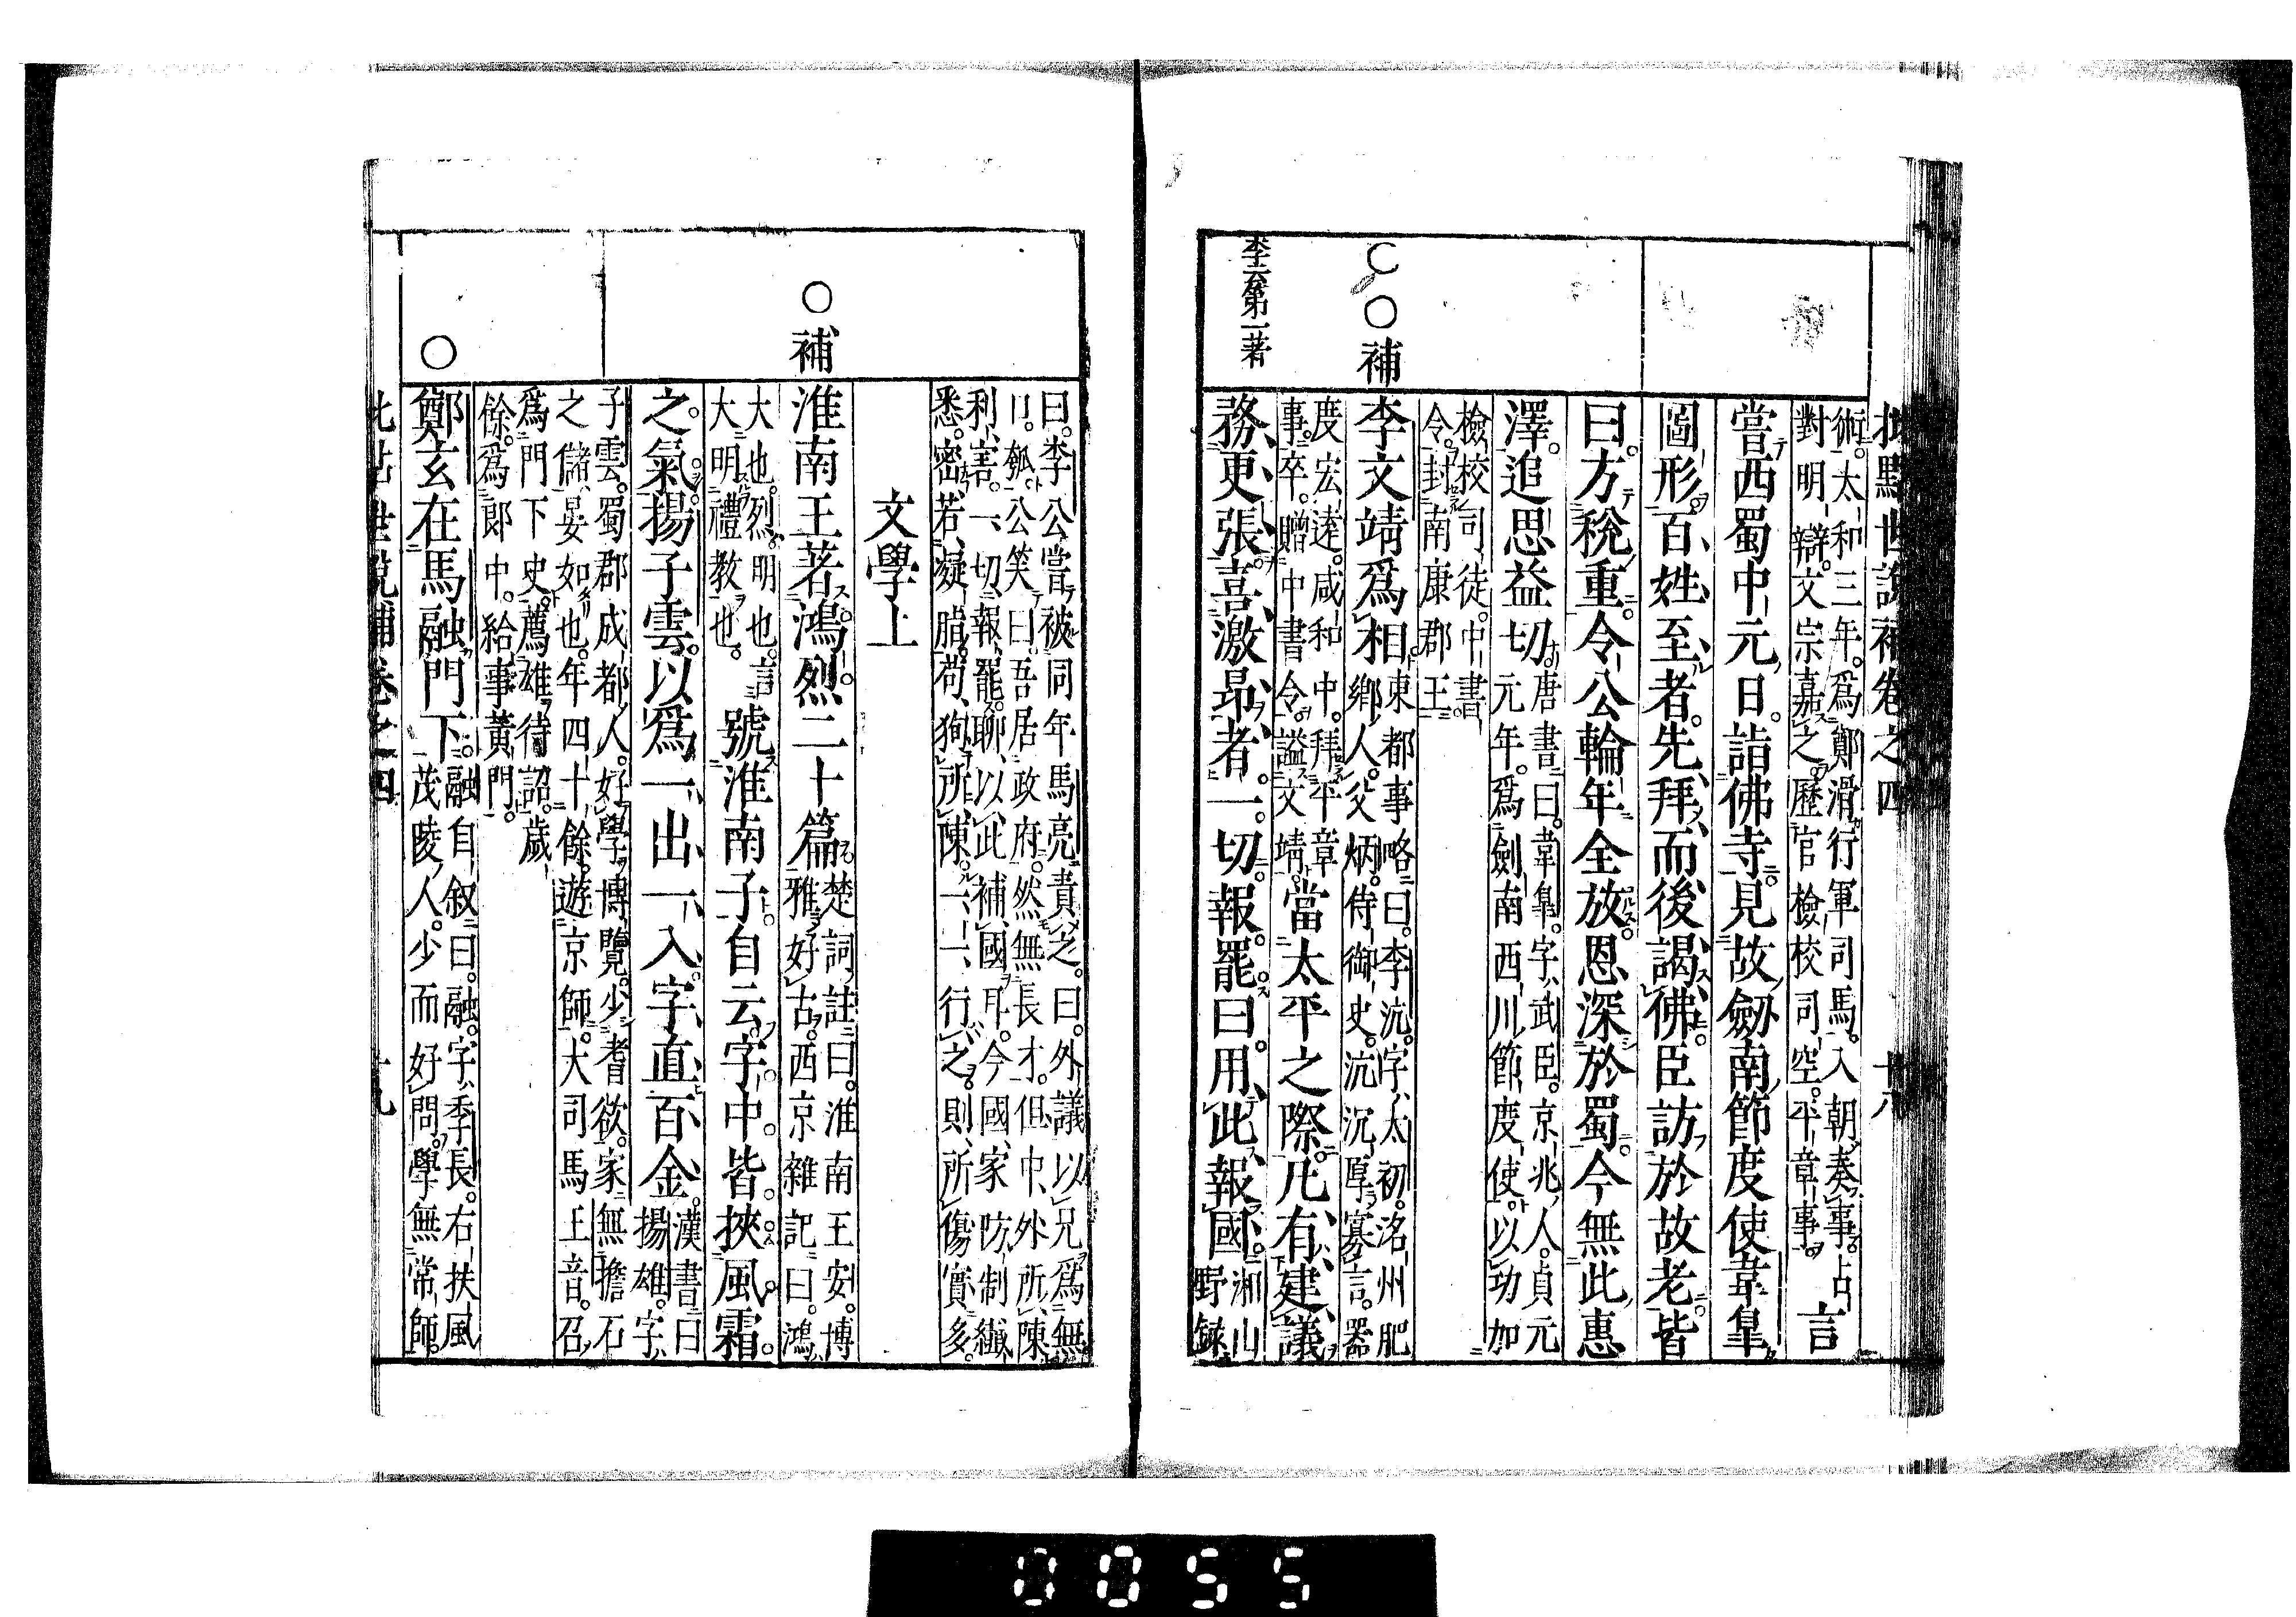 批點世說補卷之四 十八
術。太和三年。爲鄭滑。行軍司馬。入朝奏事。占
對明辯。文宗嘉之。歷官檢校司空。平章事。
言
嘗西蜀中元日。詣佛寺。見故劒南節度使韋皐
圖形。百姓至者。先拜而後謁佛。臣訪於故老。皆
曰。方稅重。令公輪年全放。恩深於蜀。今無此惠
澤。追思益切。
唐書曰。韋皐。字武臣。京兆人。貞元
元年。爲劍南西川節度使。以功加
檢校司徒。中書
令。封南康郡王。
○補
李文靖爲相。
東都事略曰。李沆。字太初。洛州肥
鄉人。父炳。侍御史。沆沉厚寡言。器
度宏遠。咸和中。拜平章
事。卒。贈中書令。謚文靖。
當太平之際。凡有建議
務更張。喜激昻者。一切報罷。曰。用此報國。
湘山
野錄
李云第一著
曰。李公嘗被同年馬亮責之。曰。外議以兄爲無
口瓠。公笑曰。吾居政府。然無長才。但中外所陳
利害。一切報罷。聊以此補國耳。今國家防制纖
悉。密若凝脂。苟狥所陳。一一行之。則所傷實多。
文學上
○補
淮南王著鴻烈二十篇
楚詞註曰。淮南王安。博
雅好古。西京雜記曰。鴻
大也。烈。明也。言
大明禮教也。
號淮南子。自云。字中皆挾風霜
之氣。揚子雲。以爲一出一入。字直百金。
漢書曰
揚雄。字
子雲。蜀郡成都人。好學博覽。少耆欲。家無擔石
之儲。晏如也。年四十餘。遊京師。大司馬王音。召
爲門下史。薦雄待詔。歲
餘。爲郎中。給事黃門。
○
鄭玄在馬融門下。
融自叙曰。融。字季長。右扶風
茂陵人。少而好問。學無常師。
批點世說補卷之四 十九
0055